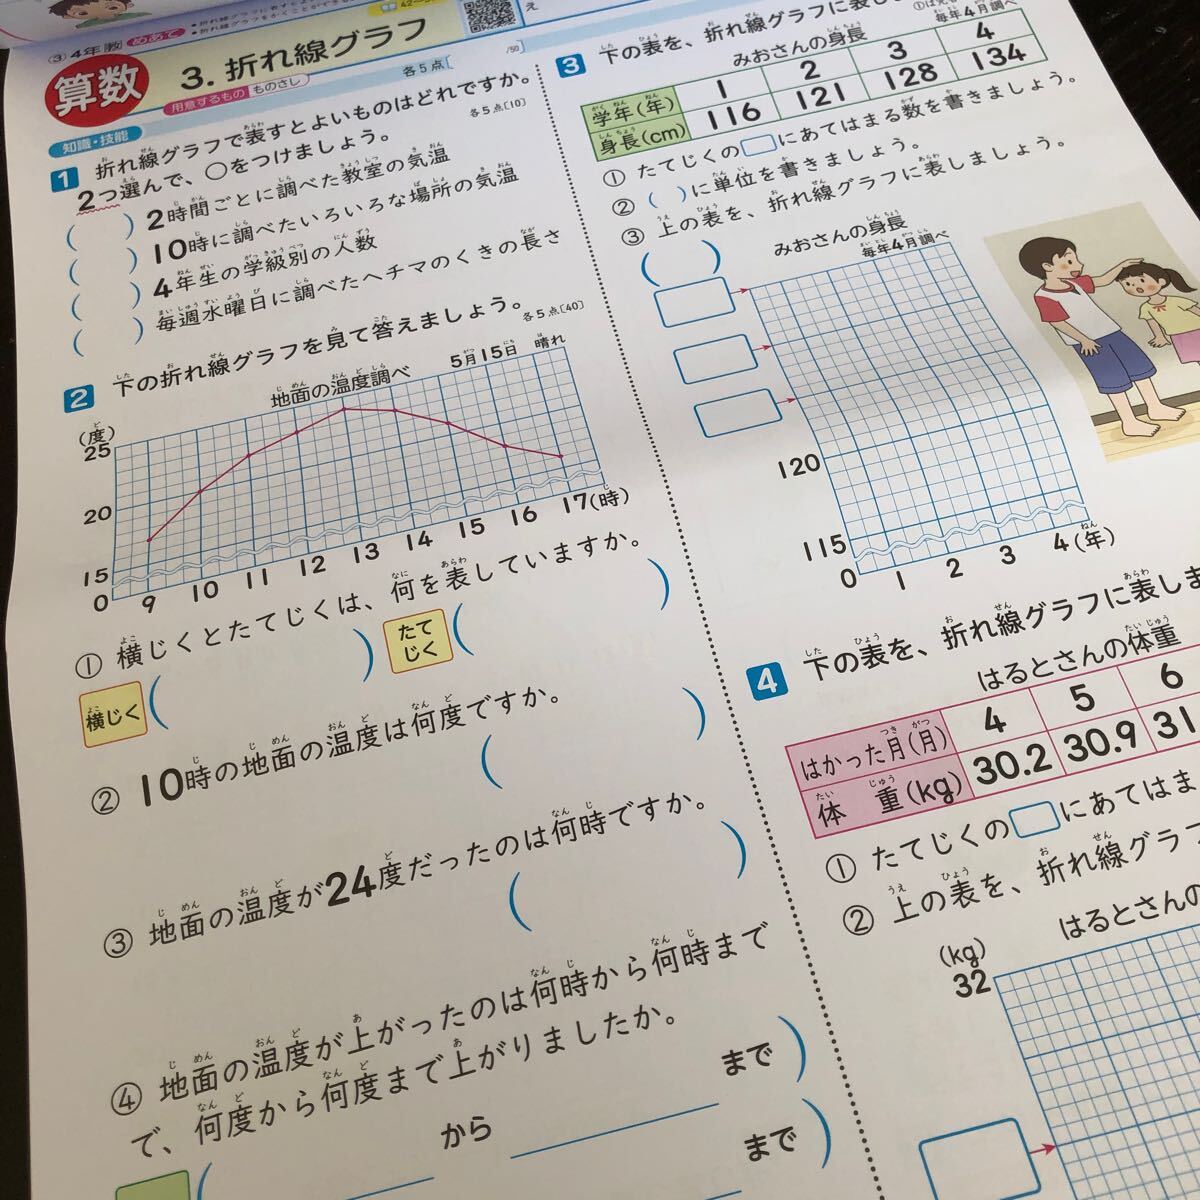 ③4年教 めあて
算数
3. 折れ線グラフ
用意するもの ものさし
各5点[ /50
知識・技能
1 折れ線グラフで表すとよいものはどれですか。
2つ選んで、○をつけましょう。
各5点[10]
( ) 2時間ごとに調べた教室の気温
( ) 10時に調べたいろいろな場所の気温
( ) 4年生の学級別の人数
( ) 毎週水曜日に調べたヘチマのくきの長さ
2 下の折れ線グラフを見て答えましょう。
各5点[40]
地面の温度調べ 5月15日 晴れ
(度)
25
20
15
0 9 10 11 12 13 14 15 16 17(時)
① 横じくとたてじくは、何を表していますか。
横じく ( ) たてじく ( )
② 10時の地面の温度は何度ですか。
( )
③ 地面の温度が24度だったのは何時ですか。
( )
④ 地面の温度が上がったのは何時から何時まで
で、何度から何度まで上がりましたか。
まで )
( から まで )
3 下の表を、折れ線グラフに表し
みおさんの身長 毎年4月調べ
学年(年) 1 2 3 4
身長(cm) 116 121 128 134
① たてじくの□にあてはまる数を書きましょう。
② ( )に単位を書きましょう。
③ 上の表を、折れ線グラフに表しましょう。
みおさんの身長
毎年4月調べ
( )
120
115
0 1 2 3 4(年)
4 下の表を、折れ線グラフに表しま
はるとさんの体重
はかった月(月) 4 5 6
体重(kg) 30.2 30.9 31
① たてじくの□にあてはま
② 上の表を、折れ線グラフ
はるとさんの
(kg)
32